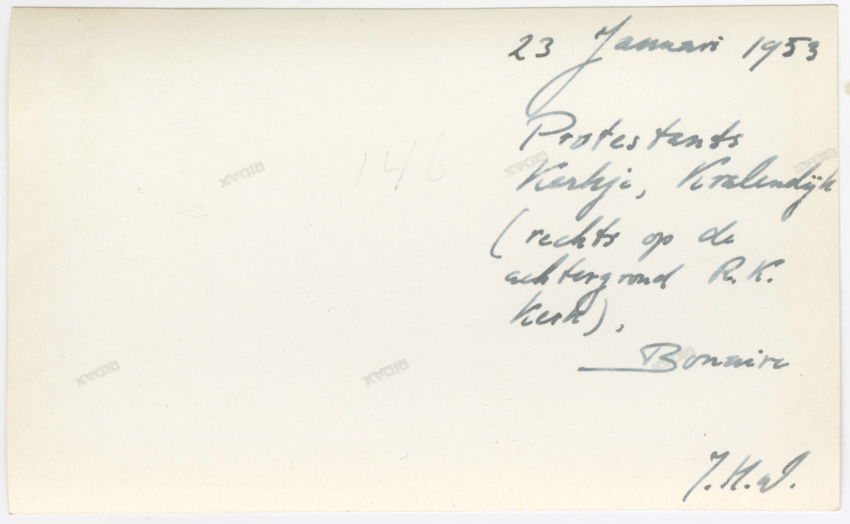 23 Januari 1953
146
Protestants
Kerkje, Kralendijk
(rechts op de
achtergrond R.K.
Kerk),
Bonaire
J.H.W.
RIDAX
RIDAX
RIDAX
RIDAX
RIDAX
RIDAX